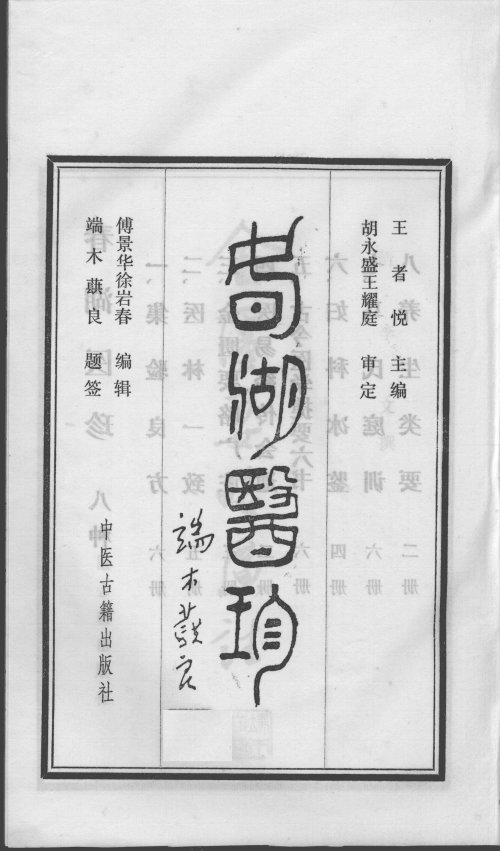 王者悦 主编
胡永盛王耀庭 审定
春湖醫珍
端木蕻良
傅景华徐岩春 编辑
端木蕻良 题签
中医古籍出版社